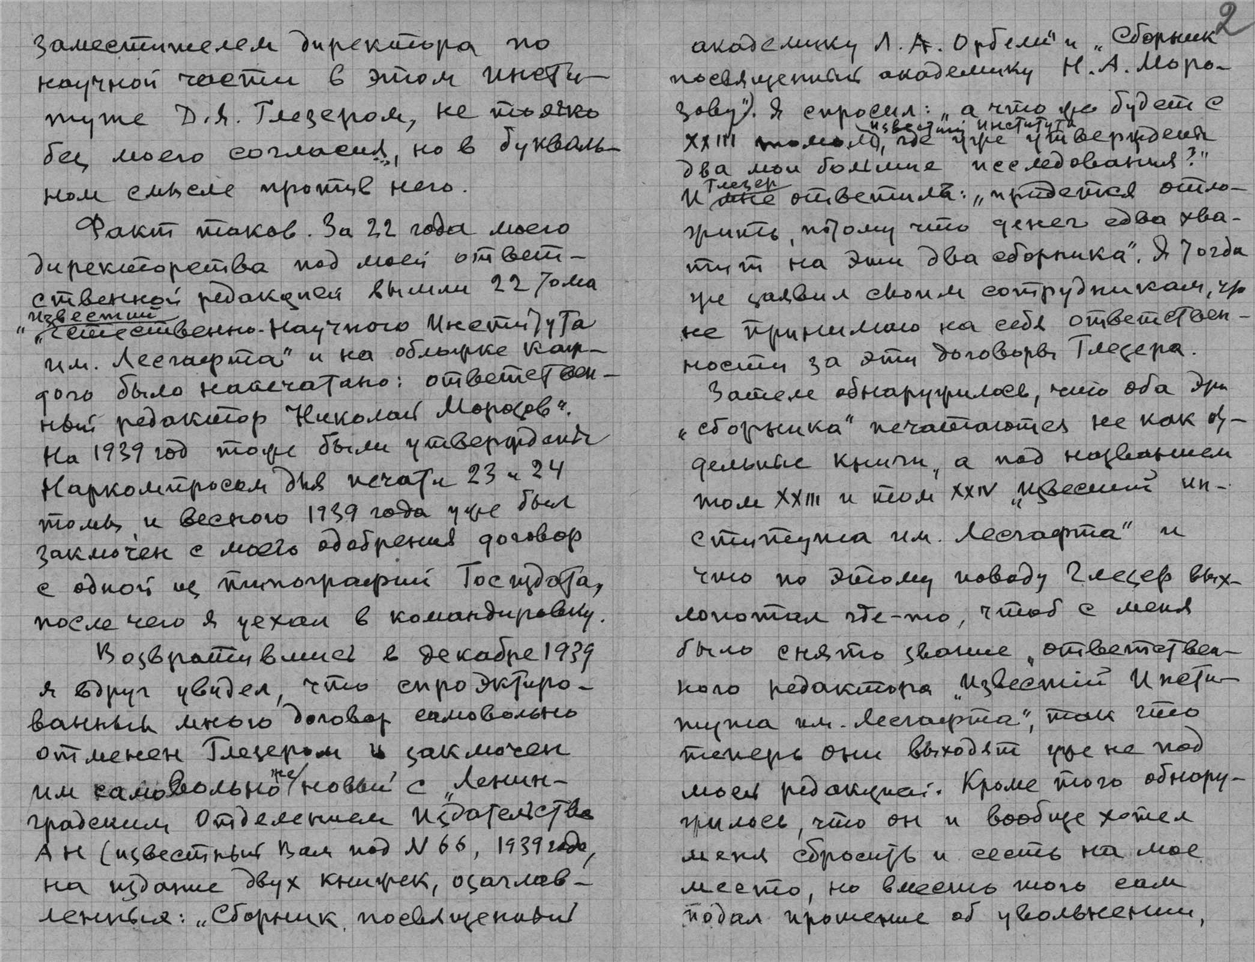 заместителем директора по
научной части в этом инсти-
туте Д.Я. Глезером, не только
без моего согласия, но в букваль-
ном смысле против него.
Факт таков. За 22 года моего
директорства под моей ответ-
ственной редакцией вышли 22 тома
"Известий
"Естественно-Научного Института
им. Лесгафта" и на обложке каж-
дого было напечатано: ответствен-
ный редактор Николай Морозов".
На 1939 год тоже были утверждены
Наркомпросом для печати 23 и 24
томы, и весною 1939 года уже был
заключен с моего одобрения договор
с одной из типографий Госиздата,
после чего я уехал в командировку.
Возвратившись в декабре 1939
я вдруг увидел, что спроэктиро-
ванный мною договор самовольно
отменен Глезером и заключен
им самовольно же новый с "Ленин-
градским Отделением Издательства
АН (известный Вам под N 66, 1939 года,
на издание двух книжек, озаглав-
ленных: "Сборник, посвященный
2
академику Л.А. Орбели" и "Сборник
посвященный академику Н.А. Моро-
зову"). Я спросил: "а что же будет с
XXIII томом Известий Института, где уже утверждены
два мои большие исследования?"
И Глезер мне ответил: "придется отло-
жить, потому что денег едва хва-
тит на эти два сборника". Я тогда
же заявил своим сотрудникам, что
не принимаю на себя ответствен-
ности за эти договоры Глезера.
Затем обнаружилось, что оба эти
"сборника" печатаются не как от-
дельные книги, а под названием
том XXIII и том XXIV "Известий ин-
ститута им. Лесгафта" и
что по этому поводу Глезер вых-
лопотал где-то, чтоб с меня
было снято звание "ответствен-
ного редактора "Известий Инсти-
тута им. Лесгафта", так что
теперь они выходят уже не под
моей редакцией. Кроме того обнару-
жилось, что он и вообще хотел
меня сбросить и сесть на мое
место, но вместо того сам
подал прошение об увольнении,